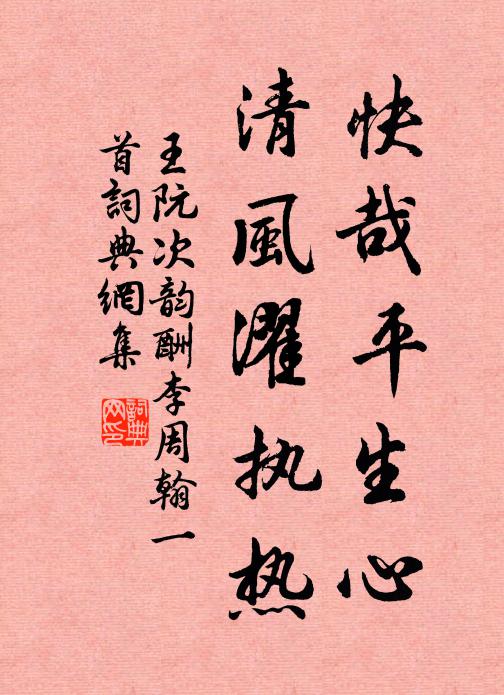 快哉平生心
清風濯执热
王阮次韵酬李周翰一
首詞典網集
詞典
网印